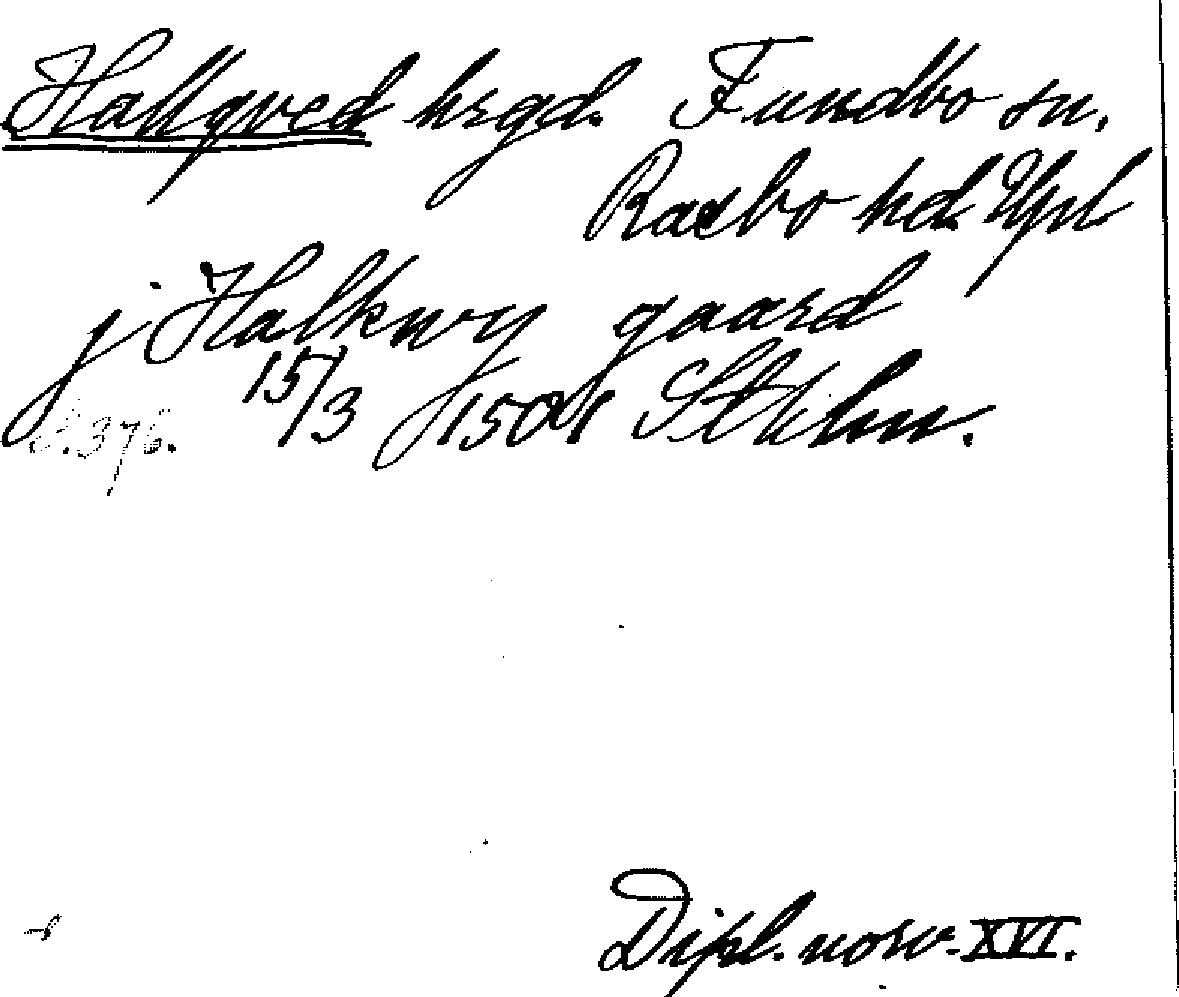 Hallqved hrgd. Fundbo sn.
Rasbo hd. Upl
j Halkwy gaard
15/3 1501 Sthlm.
s. 376.
Dipl. norv. XVI.